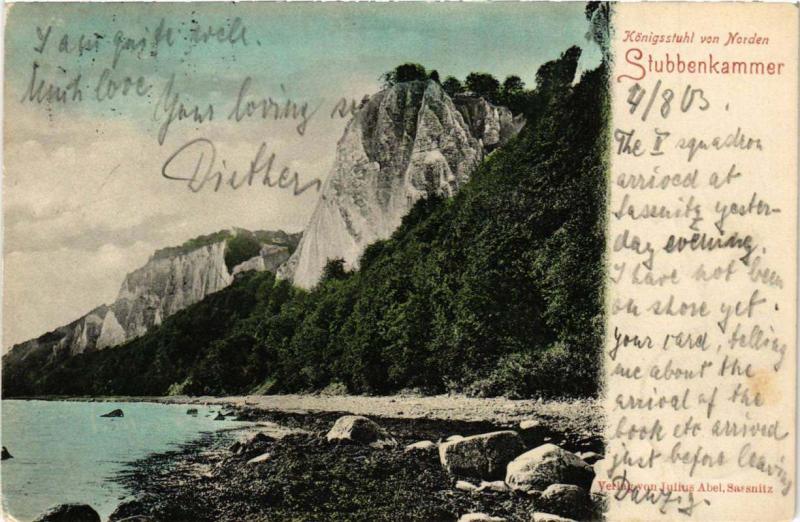 Königsstuhl von Norden
Stubbenkammer
4/8 03.
The II squadron
arrived at
Sassnitz yester-
day evening.
I have not been
on shore yet.
Your card, telling
me about the
arrival of the
book etc arrived
just before leaving
Danzig.
Verlag von Julius Abel, Sassnitz
I am quite well.
Much love
Your loving son
Diether